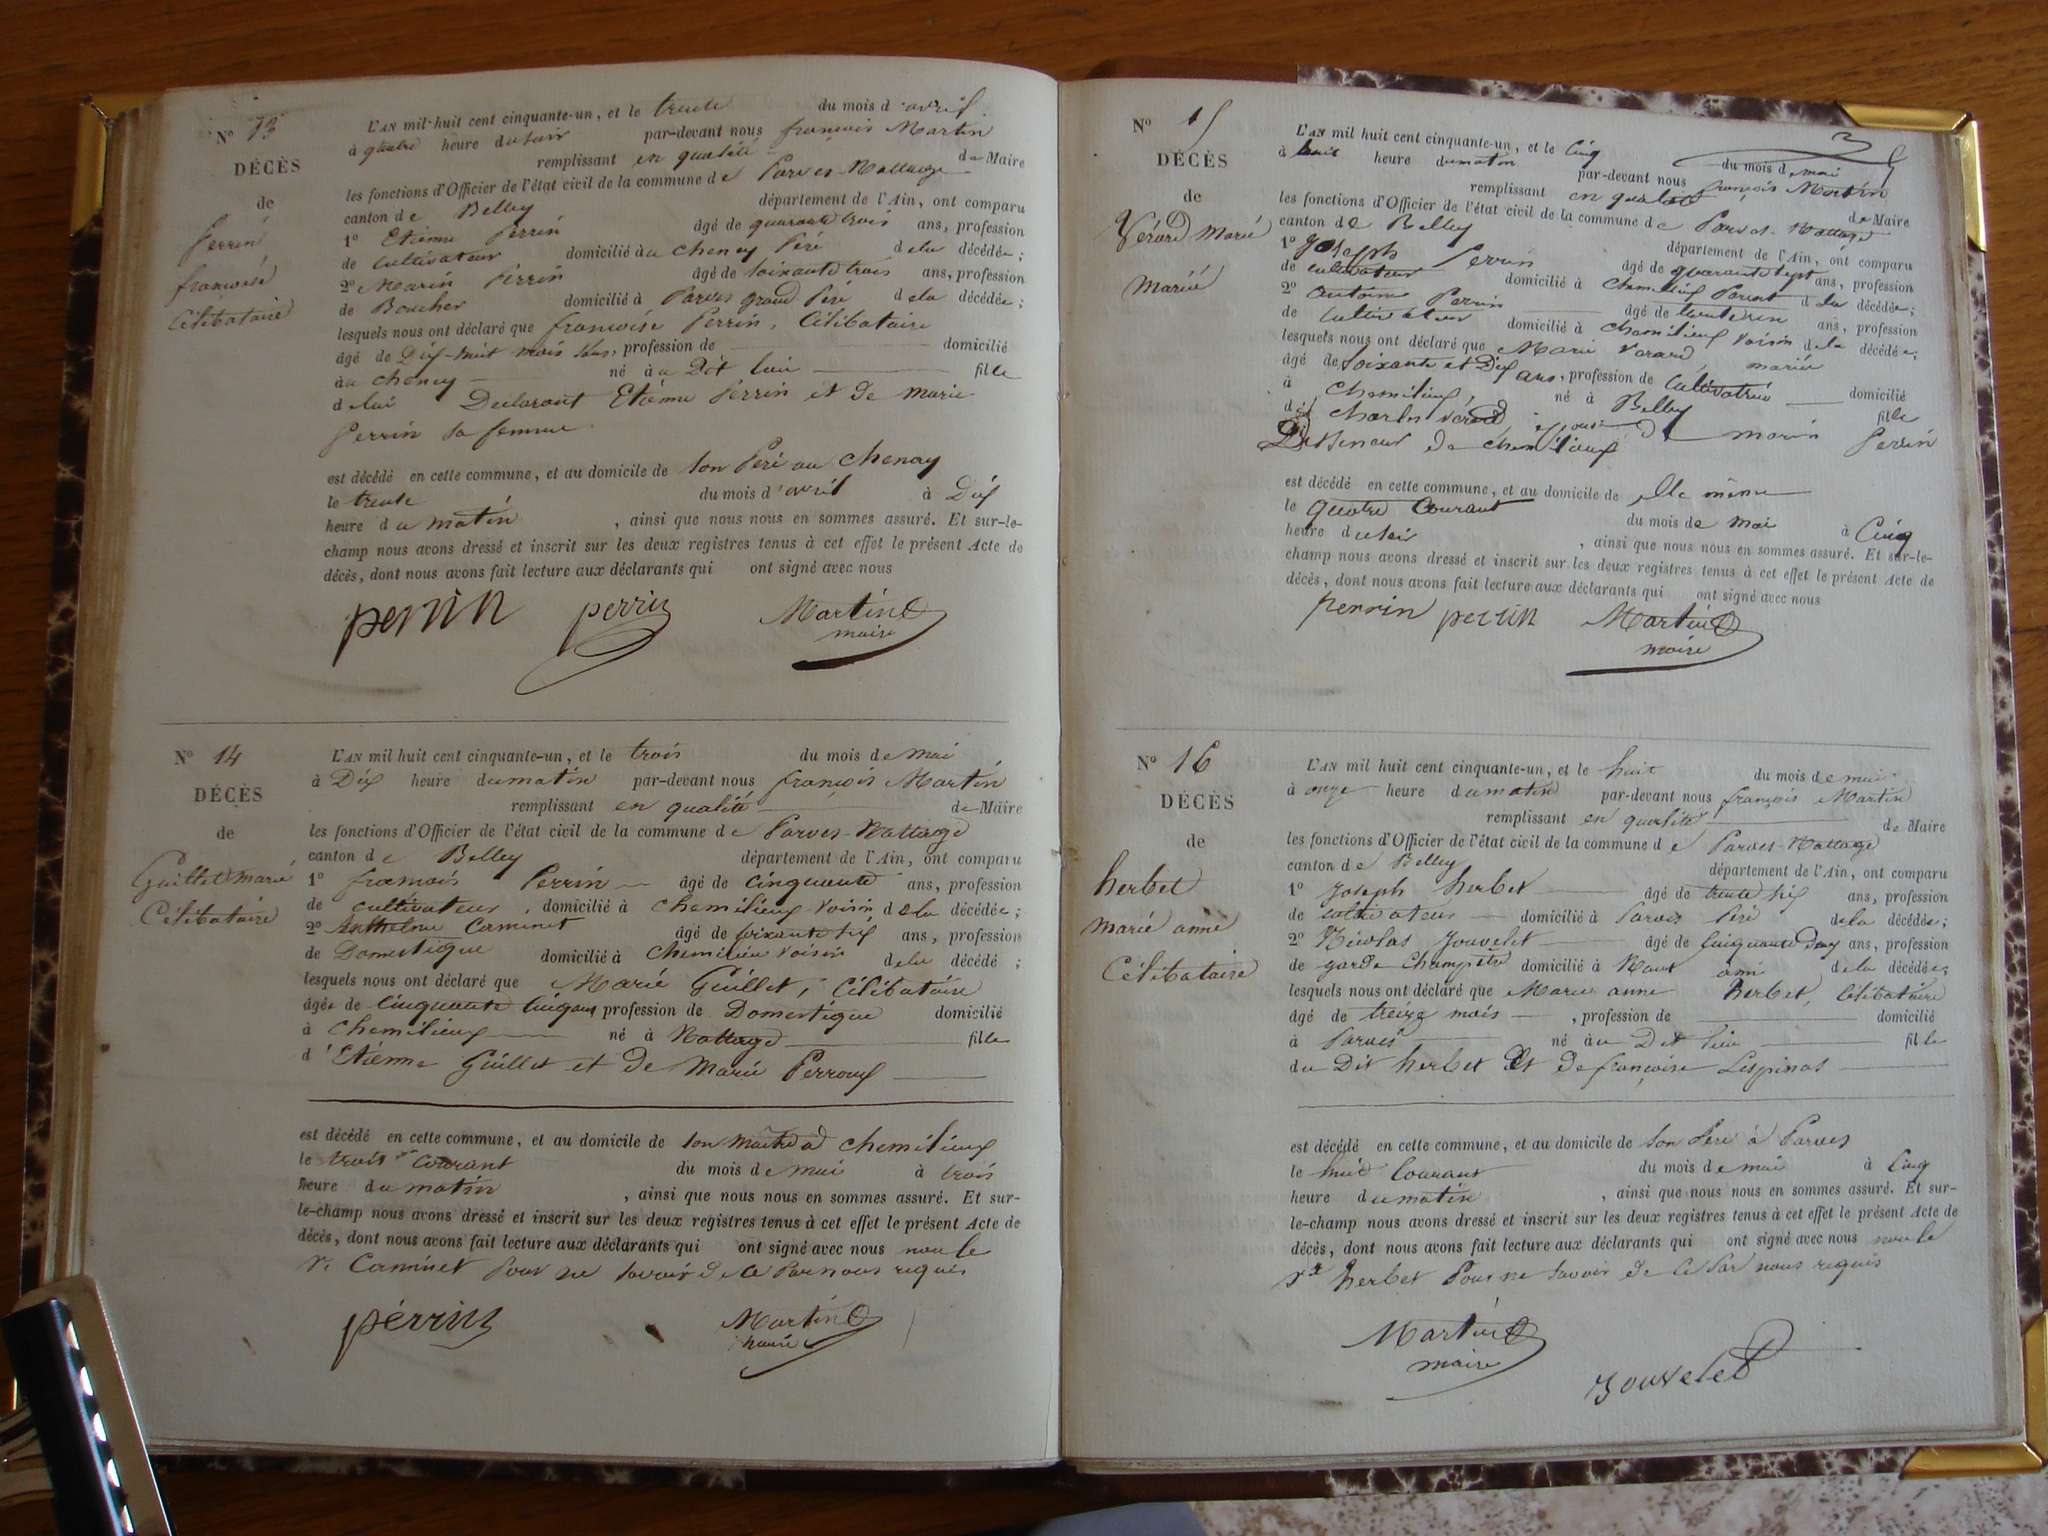 N° 13
DÉCÈS
de
Perrin
françoise
Célibataire
L'AN mil-huit cent cinquante-un, et le trente du mois d'avril
à quatre heure du soir par-devant nous françois Martin
remplissant en qualité de Maire
les fonctions d'Officier de l'état civil de la commune de Parves-Nattage
canton de Belley département de l'Ain, ont comparu
1° Etienne Perrin âgé de quarante trois ans, profession
de Cultivateur domicilié au cheney Péré de la décédée ;
2° Marin Perrin âgé de soixante trois ans, profession
de Boucher domicilié à Parves grand Péré de la décédée ;
lesquels nous ont déclaré que françoise Perrin, Célibataire
âgé de Dix-huit mois , profession de domicilié
au cheney né au Dit lieu fille
de lui Declarant Etienne Perrin et de marie
Perrin sa femme
est décédé en cette commune, et au domicile de son Péré au Cheney
le trente du mois d'avril à Dix
heure du matin , ainsi que nous nous en sommes assuré. Et sur-le-
champ nous avons dressé et inscrit sur les deux registres tenus à cet effet le présent Acte de
décès, dont nous avons fait lecture aux déclarants qui ont signé avec nous
perrin perrin Martin
maire
N° 14
DÉCÈS
de
Guillet marié
Célibataire
L'AN mil huit cent cinquante-un, et le trois du mois de mai
à Dix heure du matin par-devant nous françois Martin
remplissant en qualité de Maire
les fonctions d'Officier de l'état civil de la commune de Parves-Nattage
canton de Belley département de l'Ain, ont comparu
1° francois Perrin âgé de cinquante ans, profession
de cultivateur, domicilié à chemilieux voisin de la décédée ;
2° Anthelme Caminet âgé de soixante six ans, profession
de Domestique domicilié à Chemilieu voisin de la décédé ;
lesquels nous ont déclaré que Marié Guillet, Célibataire
âgée de cinquante cinq ans, profession de Domestique domicilié
à chemilieux né à Nattage fille
d'Etienne Guillet et de Marie Perroux
est décédé en cette commune, et au domicile de son maître à chemilieux
le trois courant du mois de mai à trois
heure du matin , ainsi que nous nous en sommes assuré. Et sur-
le-champ nous avons dressé et inscrit sur les deux registres tenus à cet effet le présent Acte de
décès, dont nous avons fait lecture aux déclarants qui ont signé avec nous non le
Sr Caminet pour ne savoir de ce par nous requis
perrin Martin
maire
N° 15
DÉCÈS
de
Vérard Marié
Mariée
L'AN mil huit cent cinquante-un, et le Cinq du mois de mai
à huit heure du matin par-devant nous françois Martin
remplissant en qualité de Maire
les fonctions d'Officier de l'état civil de la commune de Parves-Nattage
canton de Belley département de l'Ain, ont comparu
1° Joseph Perrin âgé de quarante sept ans, profession
de cultivateur domicilié à Chemilieux Parent de la décédée ;
2° antoine Perrin âgé de trente un ans, profession
de Cultivateur domicilié à Chemilieux voisin de la décédée,
lesquels nous ont déclaré que Marie Verard mariée
âgé de soixante et Dix ans, profession de Cultivatrice domicilié
à Chemilieux, né à Belley fille
de Charles Verard épouse de marin Perrin
de chemilieux
est décédé en cette commune, et au domicile de elle même
le quatre courant du mois de mai à Cinq
heure du soir , ainsi que nous nous en sommes assuré. Et sur-le-
champ nous avons dressé et inscrit sur les deux registres tenus à cet effet le présent Acte de
décès, dont nous avons fait lecture aux déclarants qui ont signé avec nous
perrin perrin Martin
maire
N° 16
DÉCÈS
de
herbet
Marié anne
Célibataire
L'AN mil huit cent cinquante-un, et le huit du mois de mai
à onze heure du matin par-devant nous françois Martin
remplissant en qualité de Maire
les fonctions d'Officier de l'état civil de la commune de Parves-Nattage
canton de Belley département de l'Ain, ont comparu
1° Joseph herbet âgé de trente six ans, profession
de cultivateur domicilié à Parves Péré de la décédée ;
2° Nicolas Jouvelet âgé de Cinquante deux ans, profession
de garde Champêtre domicilié à Nant ami de la décédée,
lesquels nous ont déclaré que Marie anne herbet, Célibataire
âgé de treize mois , profession de domicilié
à Parves né au Dit lieu fille
du Dit herbet et de françoise Lespinas
est décédé en cette commune, et au domicile de son Péré à Parves
le huit Courant du mois de mai à Cinq
heure du matin , ainsi que nous nous en sommes assuré. Et sur-
le-champ nous avons dressé et inscrit sur les deux registres tenus à cet effet le présent Acte de
décès, dont nous avons fait lecture aux déclarants qui ont signé avec nous non le
Sr herbet Pour ne savoir de ce par nous requis
Martin
maire
Jouvelet